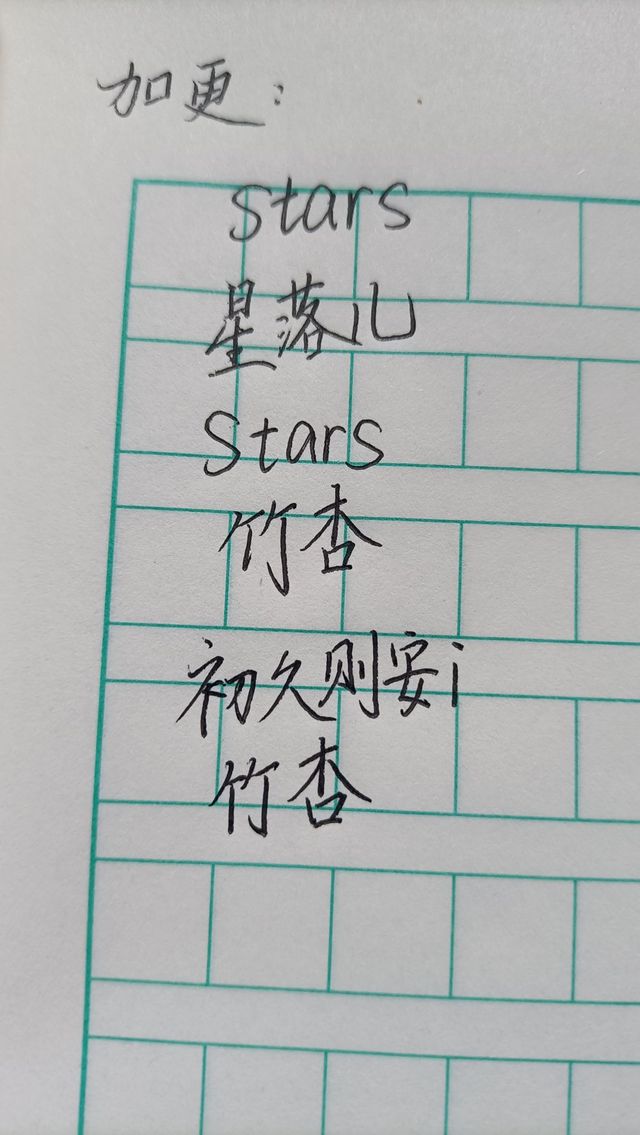 加更：
stars
星落儿
Stars
竹杏
初久则安i
竹杏